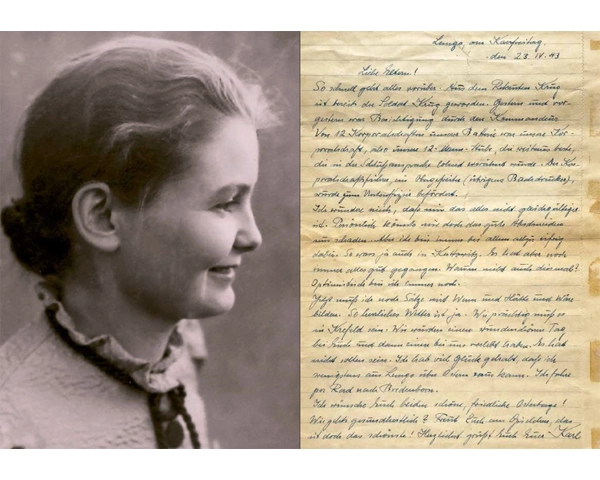 Lemgo, am Karfreitag,
den 23. IV. 43
Liebe Eltern!
So schnell geht alles vorüber. Aus dem Rekruten Krug
ist bereits der Soldat Krug geworden. Gestern und vor-
gestern war Besichtigung durch den Kommandeur
Von 12 Korporalschaften unserer Batterie war unsere Kor-
poralschaft, also unsere 12-Mann-Stube, die weitaus beste,
die in der Schlußansprache lobend erwähnt wurde. Der Kor-
poralschaftsführer, ein Obergefreiter (übrigens Buchdrucker),
wurde zum Unteroffizier befördert.
Ich wundere mich, daß mir das alles nicht gleichgültiger
ist. Persönlich könnte mir doch das gute Abschneiden
nur schaden. Aber ich bin immer bei allem eifrig
dabei. So war's ja auch in Kattowitz. Es hat aber noch
immer alles gut gegangen. Warum nicht auch diesmal!
Optimist bin ich immer noch.
Jetzt muß ich noch Sätze mit Wenn und Hätte und Wäre
bilden. So herrliches Wetter ist ja. Wie prächtig muß es
in Krefeld sein. Wir würden einen wunderschönen Tag
bei Euch und dann einen bei uns verlebt haben. Es hat
nicht sollen sein. Ich hab viel Glück gehabt, daß ich
wenigstens aus Lemgo über Ostern raus kann. Ich fahre
per Rad nach
Ich wünsche Euch beiden schöne, friedliche Ostertage!
Wie geht's gesundheitlich? Freut Euch am das
ist doch das schönste! Herzlichst grüßt Euch Euer Karl